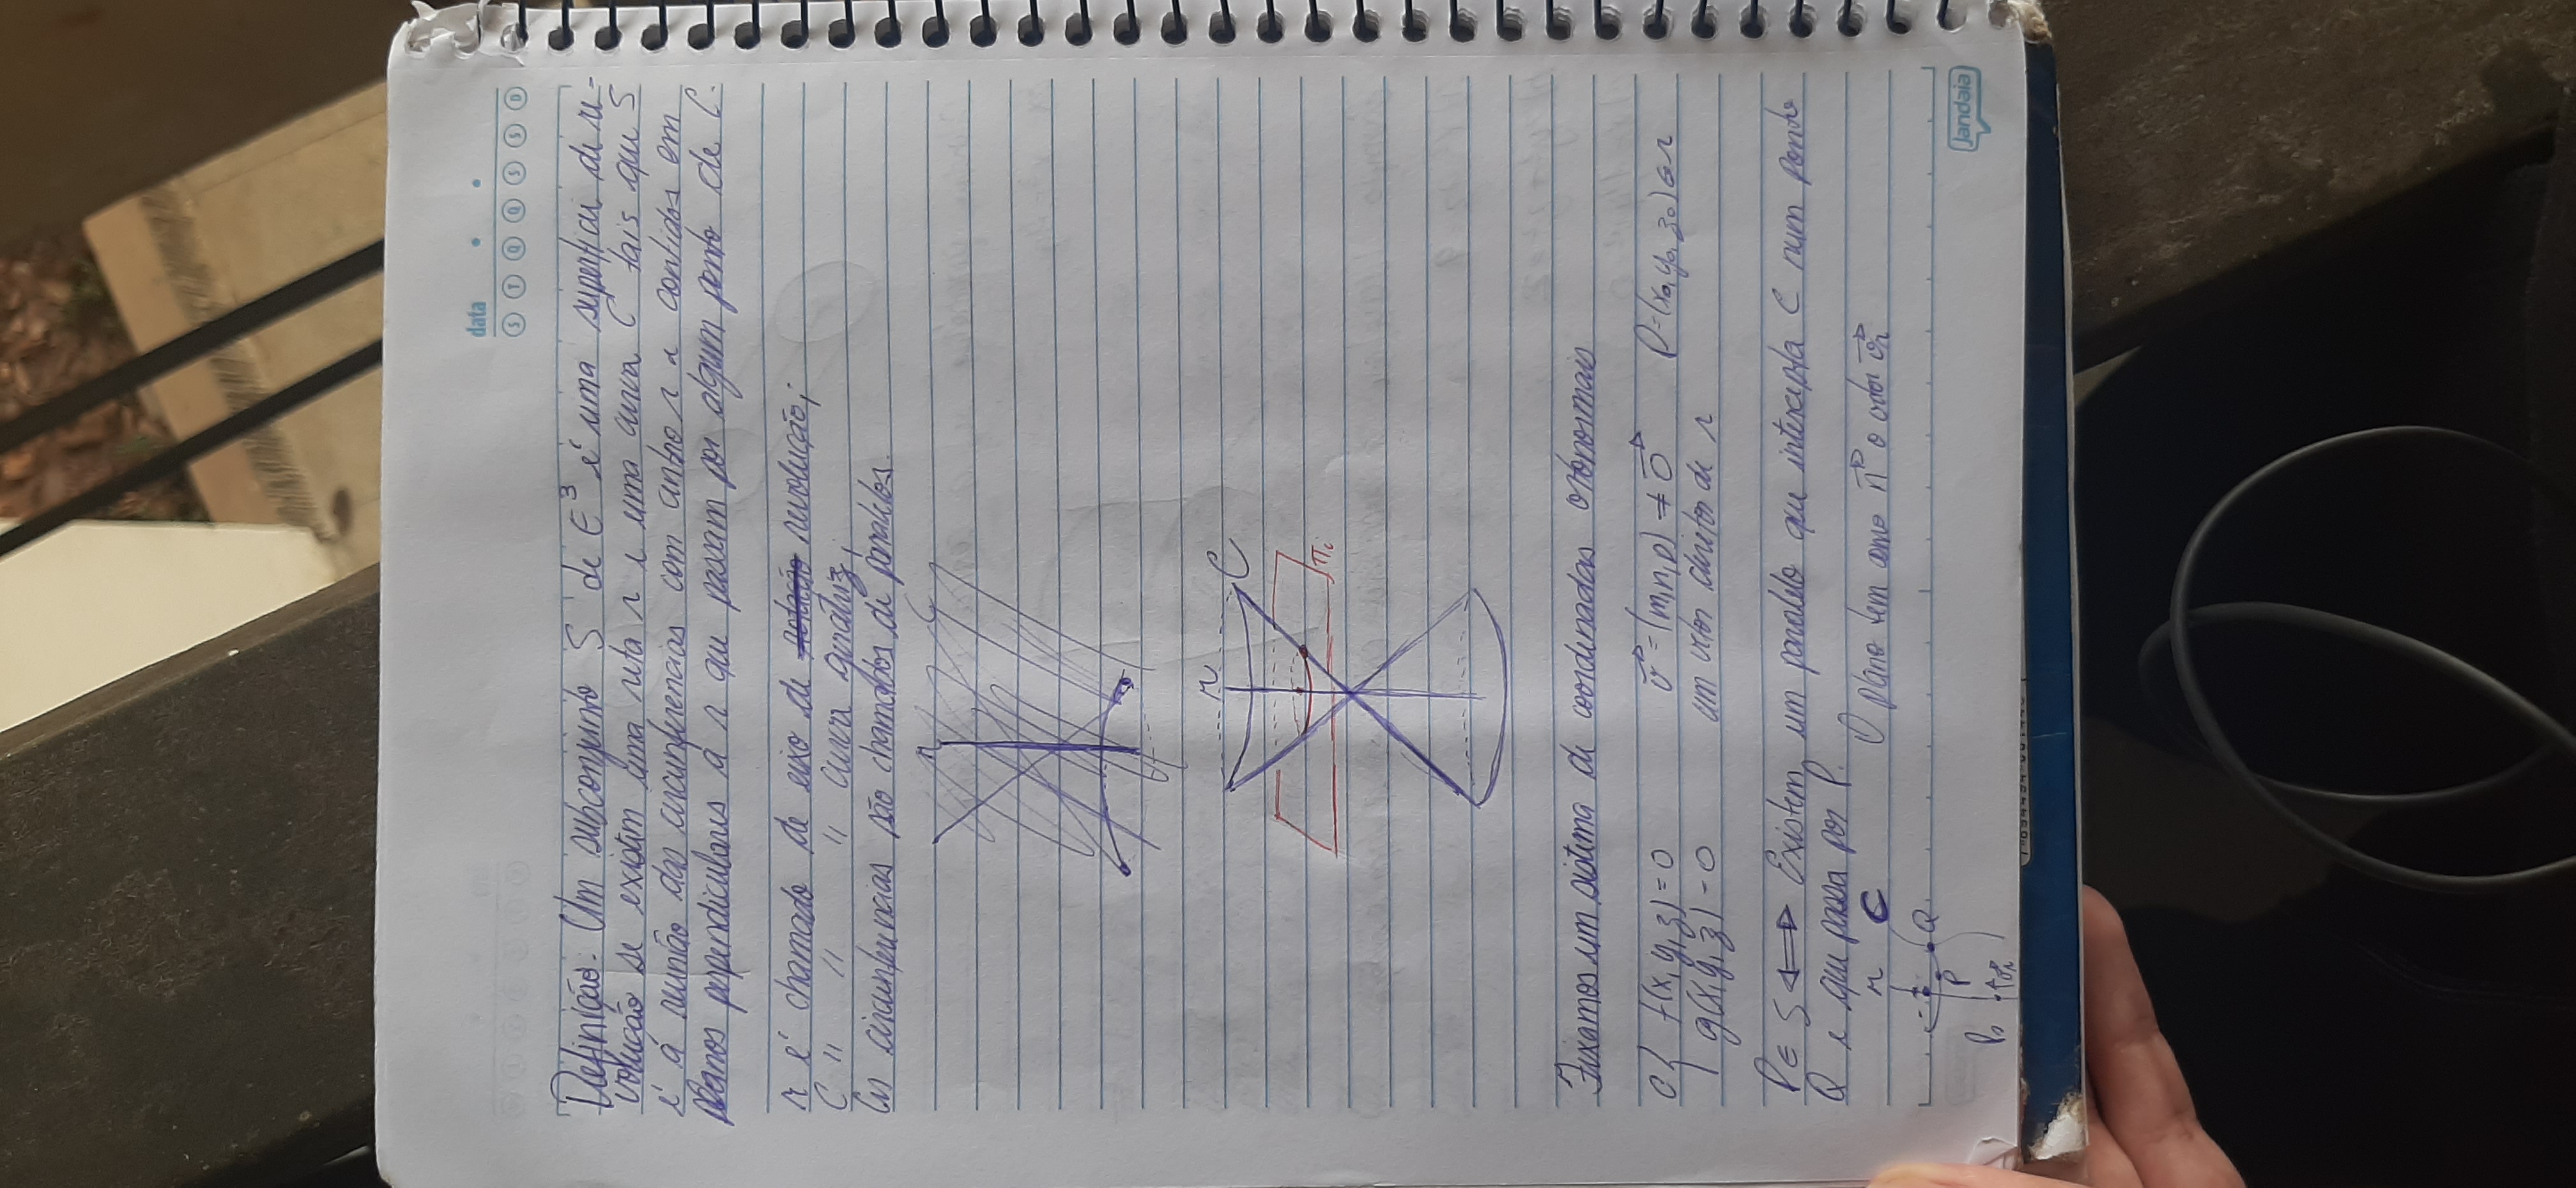 data
S T Q Q S S D
Definição: Um subconjunto S de E³ é uma superfície de re-
volução se existem uma reta r e uma curva C tais que S
é a reunião das circunferências com centro r e contidas em
planos perpendiculares a r que passam por algum ponto de C.
r é chamado de eixo de rotação revolução;
C " " " curva geratriz;
As circunferências são chamadas de paralelos.
r C
r C
π₁
Fixamos um sistema de coordenadas ortonormais
C { f(x,y,z)=0 v⃗=(m,n,p) ≠ 0⃗ P=(x₀,y₀,z₀)∈r
g(x,y,z)=0 um vetor diretor de r
P ∈ S ⟺ Existem um paralelo que intercepta C num ponto
Q e que passa por P. O plano tem como n⃗ o vetor v⃗r
r C
P Q
P₀ v⃗r
Jandaia